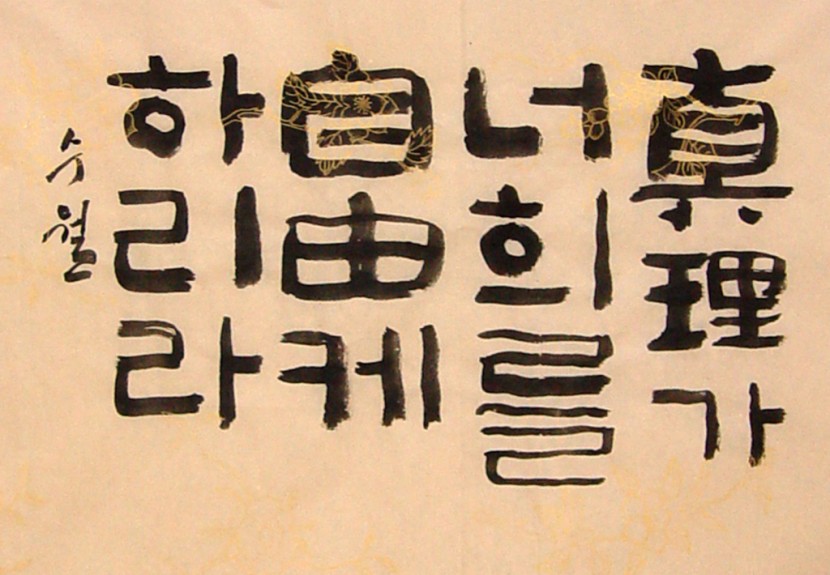 眞理가
너희를
自由케
하리라
수월